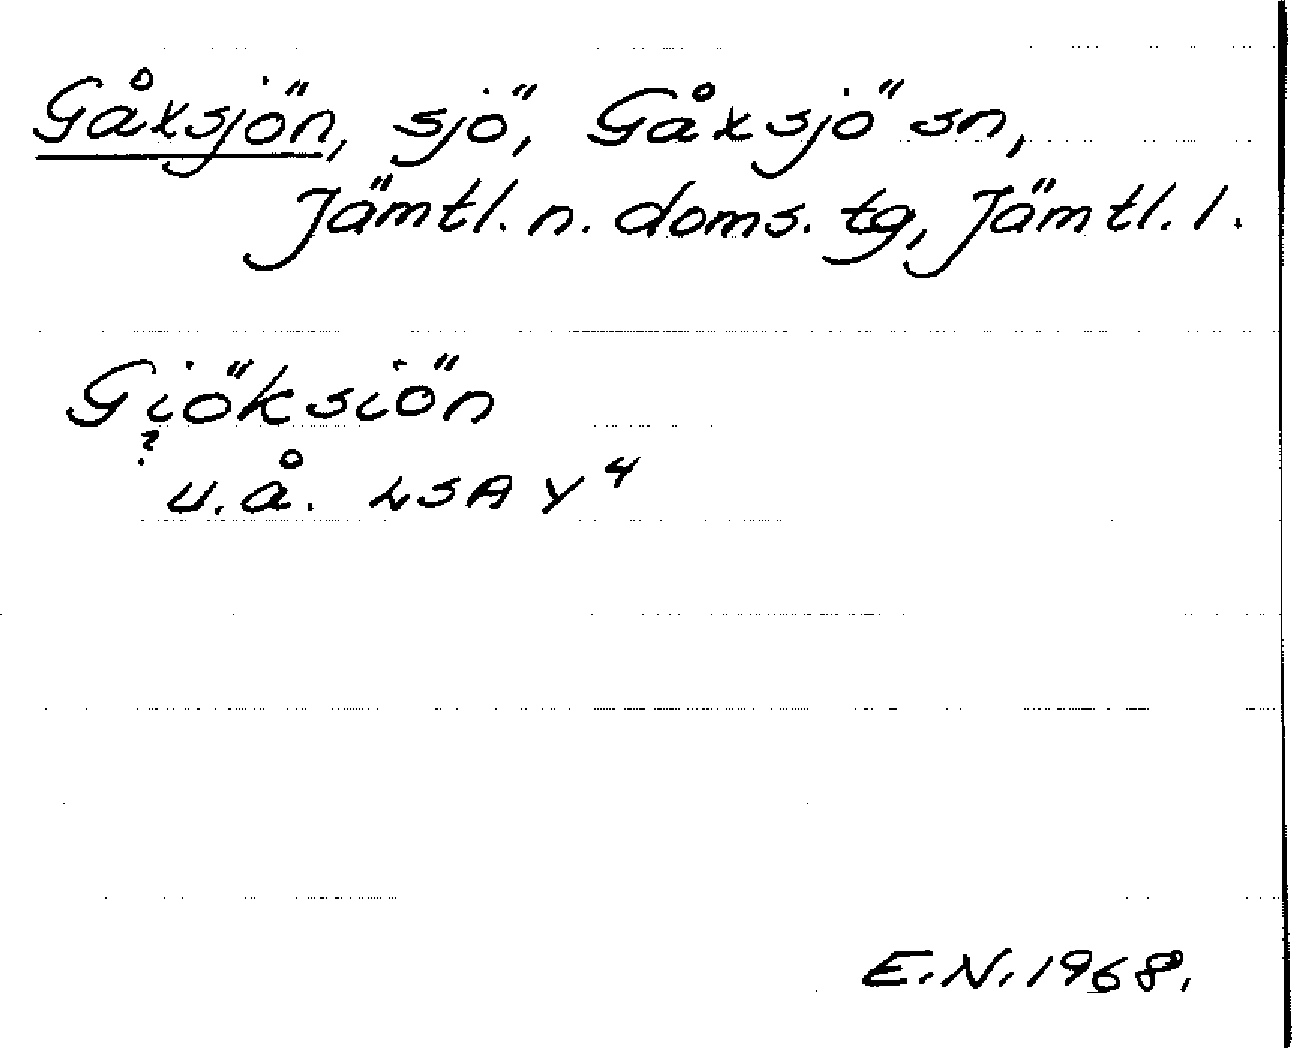 Gåxsjön, sjö, Gåxsjö sn,
Jämtl. n. doms. tg, Jämtl. l.
Giöksiön
?
u. å. LSA Y 4
E. N. 1968.